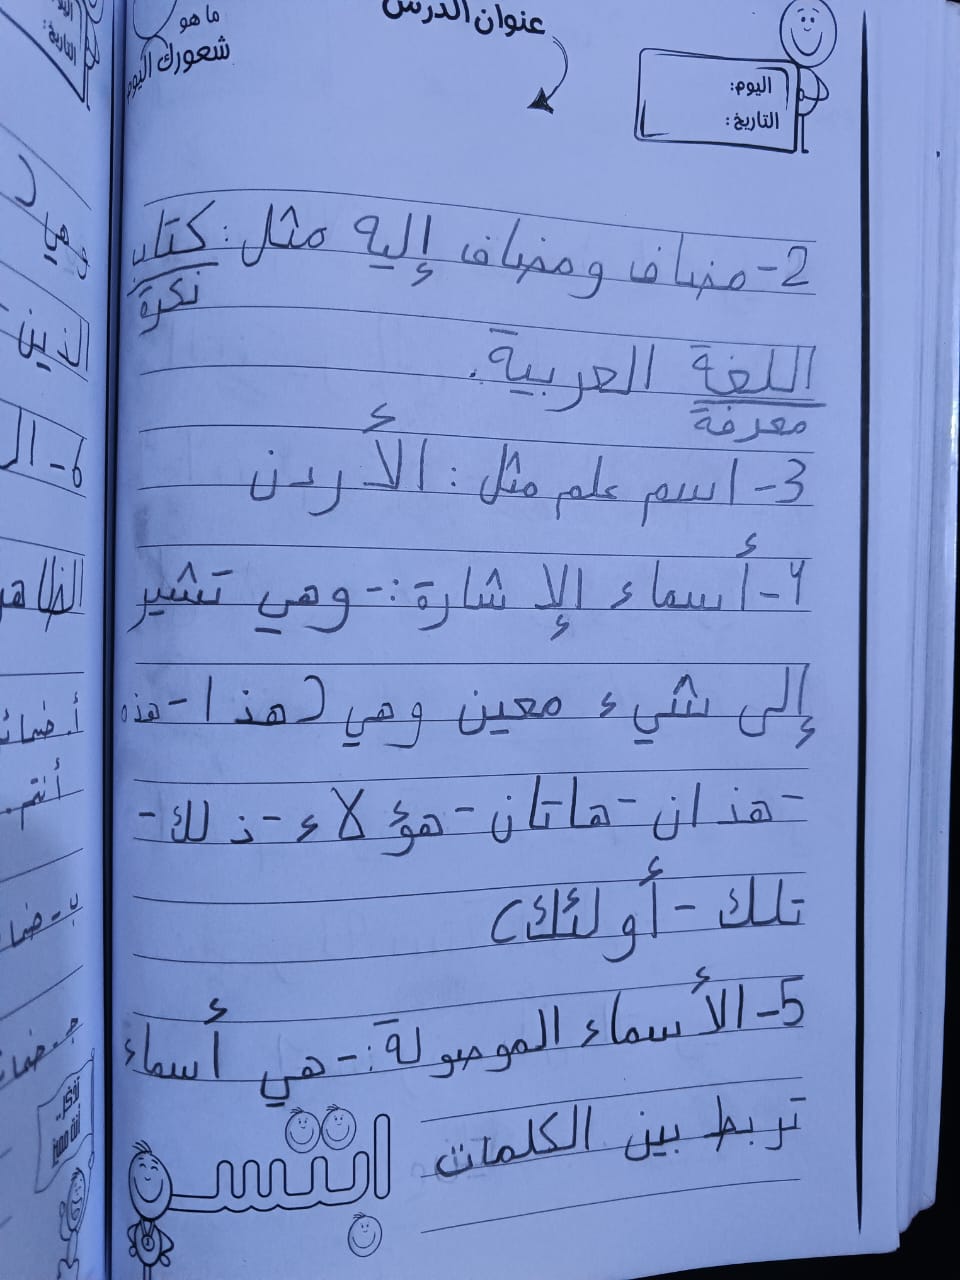 عنوان الدرس
ما هو
شعورك اليوم
اليوم:
التاريخ:
2- مضاف ومضاف إليه مثل: كتاب
نكرة
اللغة العربية.
معرفة
3- اسم علم مثل: الأردن
4- أسماء الإشارة:- وهي تشير
إلى شيء معين وهي (هذا - هذه
- هذان - هاتان - هؤلاء - ذلك -
تلك - أولئك)
5- الأسماء الموصولة:- هي أسماء
تربط بين الكلمات
ابتسم
وهي (
الذين -
6- ال
الظاهر
أ. ضمائ
أنتم
ب - ضما
جـ - ضما